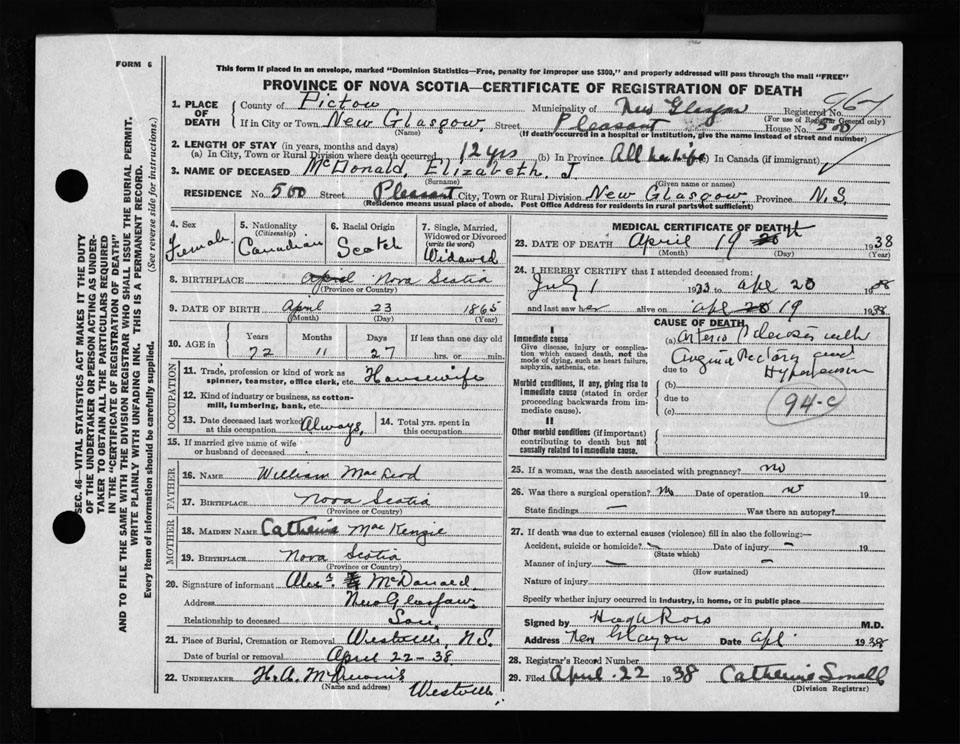 FORM 6
This form if placed in an envelope, marked "Dominion Statistics—Free, penalty for improper use $300," and properly addressed will pass through the mail "FREE"
PROVINCE OF NOVA SCOTIA—CERTIFICATE OF REGISTRATION OF DEATH
1. PLACE OF DEATH
County of Pictou Municipality of New Glasgow Registered No.
(For use of Registrar General only)
If in City or Town New Glasgow, Street Pleasant House No. 500
(Name) (If death occurred in a hospital or institution, give the name instead of street and number)
2. LENGTH OF STAY (in years, months and days)
(a) In City, Town or Rural Division where death occurred 12 yrs (b) In Province All her life (c) In Canada (if immigrant)
3. NAME OF DECEASED McDonald, Elizabeth. J.
(Surname) (Given name or names)
RESIDENCE No. 500 Street Pleasant City, Town or Rural Division New Glasgow, Province N.S.
(Residence means usual place of abode. Post Office Address for residents in rural parts not sufficient)
4. Sex Female
5. Nationality (Citizenship) Canadian
6. Racial Origin Scotch
7. Single, Married, Widowed or Divorced (write the word) Widowed
8. BIRTHPLACE April Nova Scotia
(Province or Country)
9. DATE OF BIRTH April 23 1865
(Month) (Day) (Year)
10. AGE in Years Months Days If less than one day old
72 11 27 hrs. or min.
OCCUPATION
11. Trade, profession or kind of work as spinner, teamster, office clerk, etc. Housewife
12. Kind of industry or business, as cotton-mill, lumbering, bank, etc.
13. Date deceased last worked at this occupation Always,
14. Total yrs. spent in this occupation
15. If married give name of wife or husband of deceased
FATHER
16. NAME William MacLeod
17. BIRTHPLACE Nova Scotia
(Province or Country)
MOTHER
18. MAIDEN NAME Catherine MacKenzie
19. BIRTHPLACE Nova Scotia
(Province or Country)
20. Signature of informant McDonald
Address New Glasgow,
Relationship to deceased Son
21. Place of Burial, Cremation or Removal Westville, N.S.
Date of burial or removal April 22-38
22. UNDERTAKER H.A.
(Name and address) Westville
MEDICAL CERTIFICATE OF DEATH
23. DATE OF DEATH April 19 1938
(Month) (Day) (Year)
24. I HEREBY CERTIFY that I attended deceased from:
July 1 1933 to Apl 20 1938
and last saw her alive on Apl 20 19 1938
CAUSE OF DEATH
I
Immediate cause
Give disease, injury or complication which caused death, not the mode of dying, such as heart failure, asphyxia, asthenia, etc.
(a) Arterio Sclerosis with
due to Angina Pectoris and Hypertension
Morbid conditions, if any, giving rise to immediate cause (stated in order proceeding backwards from immediate cause).
(b)
due to
(c)
94-c
II
Other morbid conditions (if important) contributing to death but not causally related to immediate cause.
25. If a woman, was the death associated with pregnancy? no
26. Was there a surgical operation? No Date of operation 19
State findings Was there an autopsy?
27. If death was due to external causes (violence) fill in also the following:—
Accident, suicide or homicide? Date of injury 19
(State which)
Manner of injury
(How sustained)
Nature of injury
Specify whether injury occurred in industry, in home, or in public place
Signed by Hugh Ross M.D.
Address New Glasgow Date Apl. 1938
28. Registrar's Record Number
29. Filed April. 22 1938 Catherine Small
(Division Registrar)
SEC. 46—VITAL STATISTICS ACT MAKES IT THE DUTY
OF THE UNDERTAKER OR PERSON ACTING AS UNDER-
TAKER TO OBTAIN ALL THE PARTICULARS REQUIRED
IN THE "CERTIFICATE OF REGISTRATION OF DEATH"
AND TO FILE THE SAME WITH THE DIVISION REGISTRAR WHO SHALL ISSUE THE BURIAL PERMIT.
WRITE PLAINLY WITH UNFADING INK. THIS IS A PERMANENT RECORD.
Every item of information should be carefully supplied. (See reverse side for instructions.)